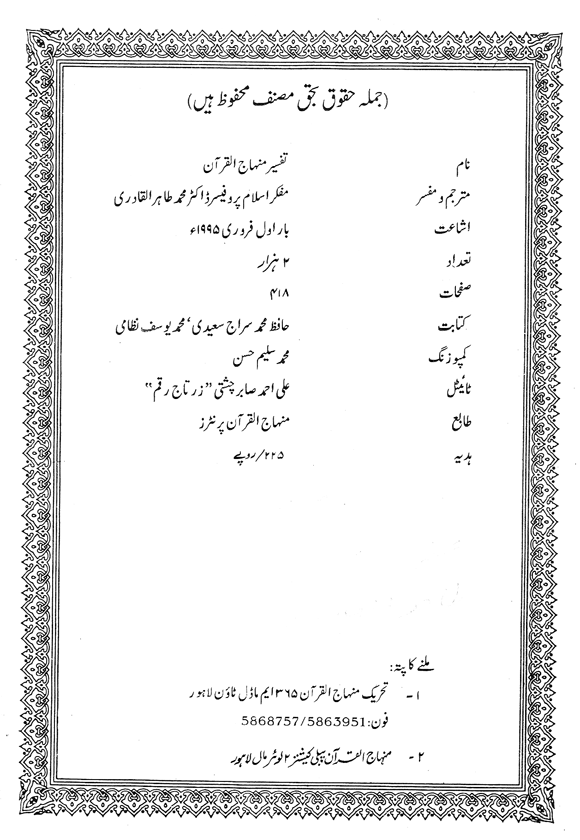 (جملہ حقوق بحق مصنف محفوظ ہیں)
نام تفسیر منہاج القرآن
مترجم و مفسر مفکر اسلام پروفیسر ڈاکٹر محمد طاہر القادری
اشاعت بار اول فروری ۱۹۹۵ء
تعداد ۲ ہزار
صفحات ۴۱۸
کتابت حافظ محمد سراج سعیدی، محمد یوسف نظامی
کمپوزنگ محمد سلیم حسن
ٹائیٹل علی احمد صابر چشتی "زر تاج رقم"
طابع منہاج القرآن پرنٹرز
ہدیہ ۲۲۵/روپے
ملنے کا پتہ:
۱- تحریک منہاج القرآن ۳۶۵ ایم ماڈل ٹاؤن لاہور
فون: 5868757/5863951
۲- منہاج القرآن پبلی کیشنز ۲ لوئر مال لاہور